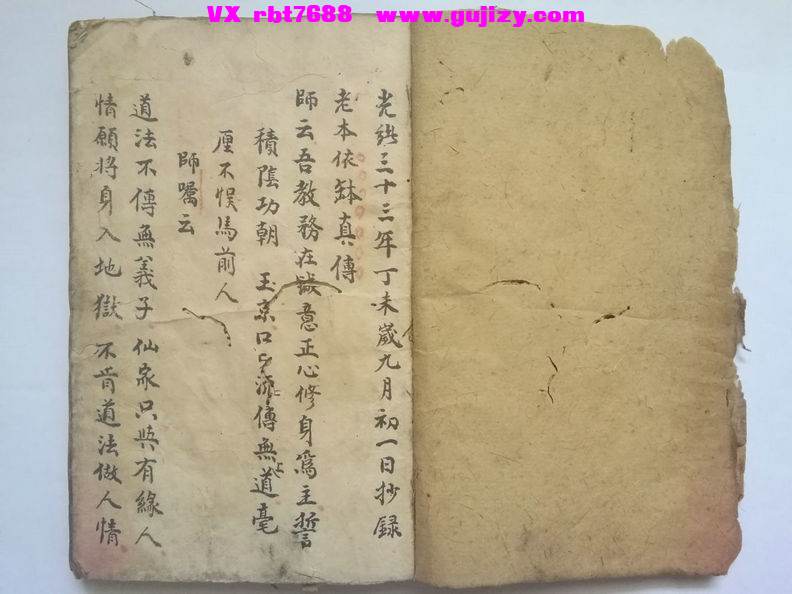 VX rbt7688 www.gujizy.com
光緒三十三年丁未歲九月初一日抄録
老本依缽真傳
師云吾教務在誠意正心修身爲主誓
積陰功朝 玉京口口流傳無道毫
厘不悮馬前人
師囑云
道法不傳無義子 仙家只與有緣人
情願將身入地獄 不肯道法做人情